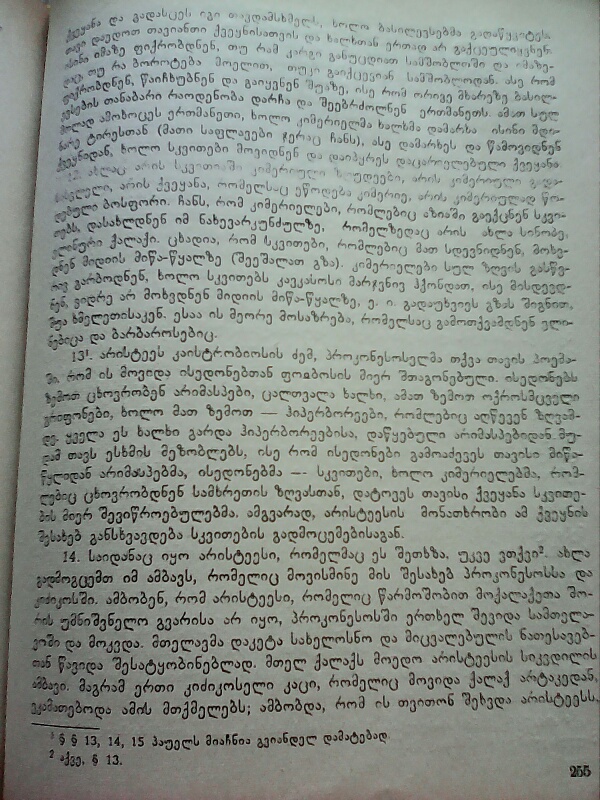 ქვეყანა და გადასცეს იგი თავდამსხმელს, ხოლო ბასილევსებმა გადაწყვიტეს
თავი დაედოთ თავიანთი ქვეყნისათვის და ხალხთან ერთად არ გაქცეულიყვნენ.
ისინი იმაზე ფიქრობდნენ, თუ რამ კარგი განუცდიათ სამშობლოში და იმაზე-
დაც თუ რა ბოროტება მოელით, თუკი გაიქცევიან სამშობლოდან. ასე რომ
ფიქრობდნენ, წაიჩხუბნენ და გაიყვნენ შუაზე, ისე რომ ორივე მხარეზე ბასილ-
ევსების თანაბარი რაოდენობა დარჩა და შეებრძოლნენ ერთმანეთს. ამათ სულ
მთლად ამოხოცეს ერთმანეთი, ხოლო კიმერიელმა ხალხმა დამარხა ისინი მდი-
ნარე ტირესთან (მათი საფლავები ჯერაც ჩანს), ასე დამარხეს და წამოვიდნენ
ქვეყნიდან, ხოლო სკვითები მოვიდნენ და დაიპყრეს დაცარიელებული ქვეყანა.
12. ახლაც არის სკვითიაში კიმერიული ზღუდეები, არის კიმერიული გადა-
სასვლელი, არის ქვეყანა, რომელსაც ეწოდება კიმერიე, არის კიმერიულად წო-
დებული ბოსფორი. ჩანს, რომ კიმერიელები, რომლებიც აზიაში გაექცნენ სკვი-
თებს, დასახლდნენ იმ ნახევარკუნძულზე, რომელზედაც არის ახლა სინოპე,
ელინური ქალაქი. ცხადია, რომ სკვითები, რომლებიც მათ სდევნიდნენ, მოხვ-
დნენ მიდიის მიწა-წყალზე (შეეშალათ გზა). კიმერიელები სულ ზღვის გასწვ-
რივ გარბოდნენ, ხოლო სკვითებს კავკასოსი მარჯვნივ ჰქონდათ, ისე მისდევდ-
ნენ, ვიდრე არ მოხვდნენ მიდიის მიწა-წყალზე, ე. ი. გადაუხვიეს გზას შიგნით,
შუა ხმელეთისაკენ. ესაა ის მეორე მოსაზრება, რომელსაც გამოთქვამდნენ ელი-
ნებიცა და ბარბაროსებიც.
13¹. არისტეეს კაისტრობიოსის ძემ, პროკონესოსელმა თქვა თავის პოემა-
ში, რომ ის მოვიდა ისედონებთან ფოჲბოსის მიერ შთაგონებული. ისედონებს
ზემოთ ცხოვრობენ არიმასპები, ცალთვალა ხალხი, ამათ ზემოთ ოქროსმცველი
გრიფონები, ხოლო მათ ზემოთ — ჰიპერბორეები, რომლებიც აღწევენ ზღვამ-
დე. ყველა ეს ხალხი გარდა ჰიპერბორეებისა, დაწყებული არიმასპებიდან მუ-
დამ თავს ესხმის მეზობლებს, ისე რომ ისედონები გამოაძევეს თავისი მიწა-
წყლიდან არიმასპებმა, ისედონებმა — სკვითები, ხოლო კიმერიელებმა, რომ-
ლებიც ცხოვრობდნენ სამხრეთის ზღვასთან, დატოვეს თავისი ქვეყანა სკვითე-
ბის მიერ შევიწროებულებმა. ამგვარად, არისტეესის მონათხრობი ამ ქვეყნის
შესახებ განსხვავდება სკვითების გადმოცემებისაგან.
14. საიდანაც იყო არისტეესი, რომელმაც ეს შეთხზა, უკვე ვთქვი². ახლა
გადმოგცემთ იმ ამბავს, რომელიც მოვისმინე მის შესახებ პროკონესოსსა და
კიძიკოსში. ამბობენ, რომ არისტეესი, რომელიც წარმოშობით მოქალაქეთა შო-
რის უმნიშვნელო გვარისა არ იყო, პროკონესოსში ერთხელ შევიდა სამთელა-
ვოში და მოკვდა. მთელავმა დაკეტა სახელოსნო და მიცვალებულის ნათესავებ-
თან წავიდა შესატყობინებლად. მთელ ქალაქს მოედო არისტეესის სიკვდილის
ამბავი. მაგრამ ერთი კიძიკოსელი კაცი, რომელიც მოვიდა ქალაქ არტაკედან,
ეკამათებოდა ამის მთქმელებს; ამბობდა, რომ ის თვითონ შეხვდა არისტეესს,
¹ § § 13, 14, 15 პაუელს მიაჩნია გვიანდელ დამატებად.
² აქვე, § 13.
255